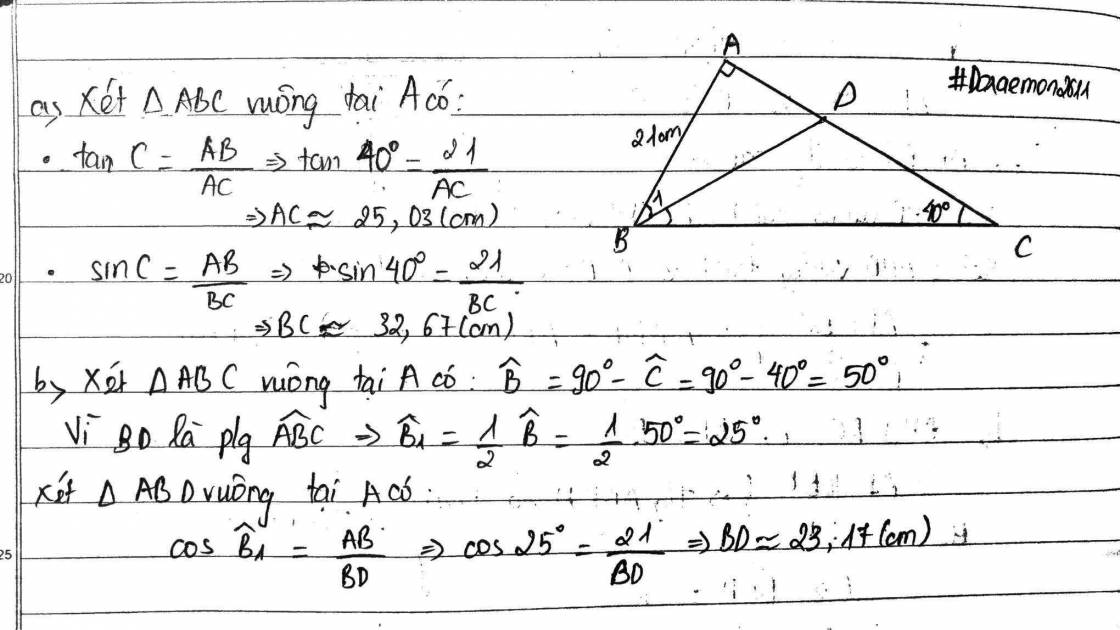 a, Xét Δ ABC vuông tại A có:
• tan C = AB/AC ⇒ tan 40° = 21/AC
⇒ AC ≈ 25,03 (cm)
• sin C = AB/BC ⇒ sin 40° = 21/BC
⇒ BC ≈ 32,67 (cm)
b, Xét Δ ABC vuông tại A có: B̂ = 90° - Ĉ = 90° - 40° = 50°
Vì BD là plg ABĈ ⇒ B̂1 = 1/2 B̂ = 1/2 . 50° = 25°.
Xét Δ ABD vuông tại A có:
cos B̂1 = AB/BD ⇒ cos 25° = 21/BD ⇒ BD ≈ 23,17 (cm)
A
#Doraemon2611
D
21cm
1
40°
B
C
20
25